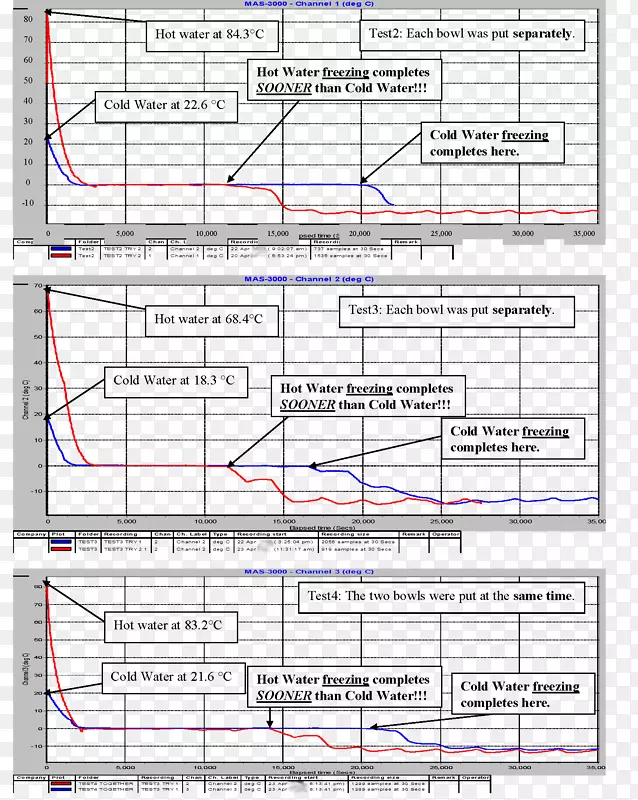 MAS-3000 - Channel 1 (deg C)
Hot water at 84.3°C
Test2: Each bowl was put separately.
Hot Water freezing completes
SOONER than Cold Water!!!
Cold Water at 22.6 °C
Cold Water freezing
completes here.
80
70
60
50
40
30
20
10
0
-10
0 5,000 10,000 15,000 20,000 25,000 30,000 35,000
psed time
Folder Recording Chan Ch. L Remark
Test2 TEST2 TRY 2 2 Channel 2 deg C 22 Apr (9:02:07 am) 737 samples at 30 Secs
Test2 TEST2 TRY 2 1 Channel 1 deg C 20 Apr 1535 samples at 30 Secs
MAS-3000 - Channel 2 (deg C)
Hot water at 68.4°C
Test3: Each bowl was put separately.
Cold Water at 18.3 °C
Hot Water freezing completes
SOONER than Cold Water!!!
Cold Water freezing
completes here.
Channel 2 (deg C)
70
60
50
40
30
20
10
0
-10
0 5,000 10,000 15,000 20,000 25,000 30,000 35,00
Elapsed time (Secs)
Company Plot Folder Recording Chan Ch. Label Type Recording start Recording size Remark Operator
TEST3 TEST3 TRY 1 2 Channel 2 deg C 22 Apr samples at 30 Secs
TEST3 TEST3 TRY 2 1 2 Channel 2 deg C 23 Apr (11:31:17 am) samples at 30 Secs
MAS-3000 - Channel 3 (deg C)
Test4: The two bowls were put at the same time.
Hot water at 83.2°C
Cold Water at 21.6 °C
Hot Water freezing completes
SOONER than Cold Water!!!
Cold Water freezing
completes here.
80
70
60
50
40
30
20
10
0
-10
0 5,000 10,000 15,000 20,000 25,000 30,000 35,00
Elapsed time (Secs)
Company Plot Folder Recording Chan Ch. Label Type Recording start Recording size Remark Operator
TEST4 TOGETHER TEST3 TRY 1 2 Channel 2 deg C 23 Apr samples at 30 Secs
TEST4 TOGETHER TEST3 TRY 1 3 Channel 3 deg C 23 Apr samples at 30 Secs